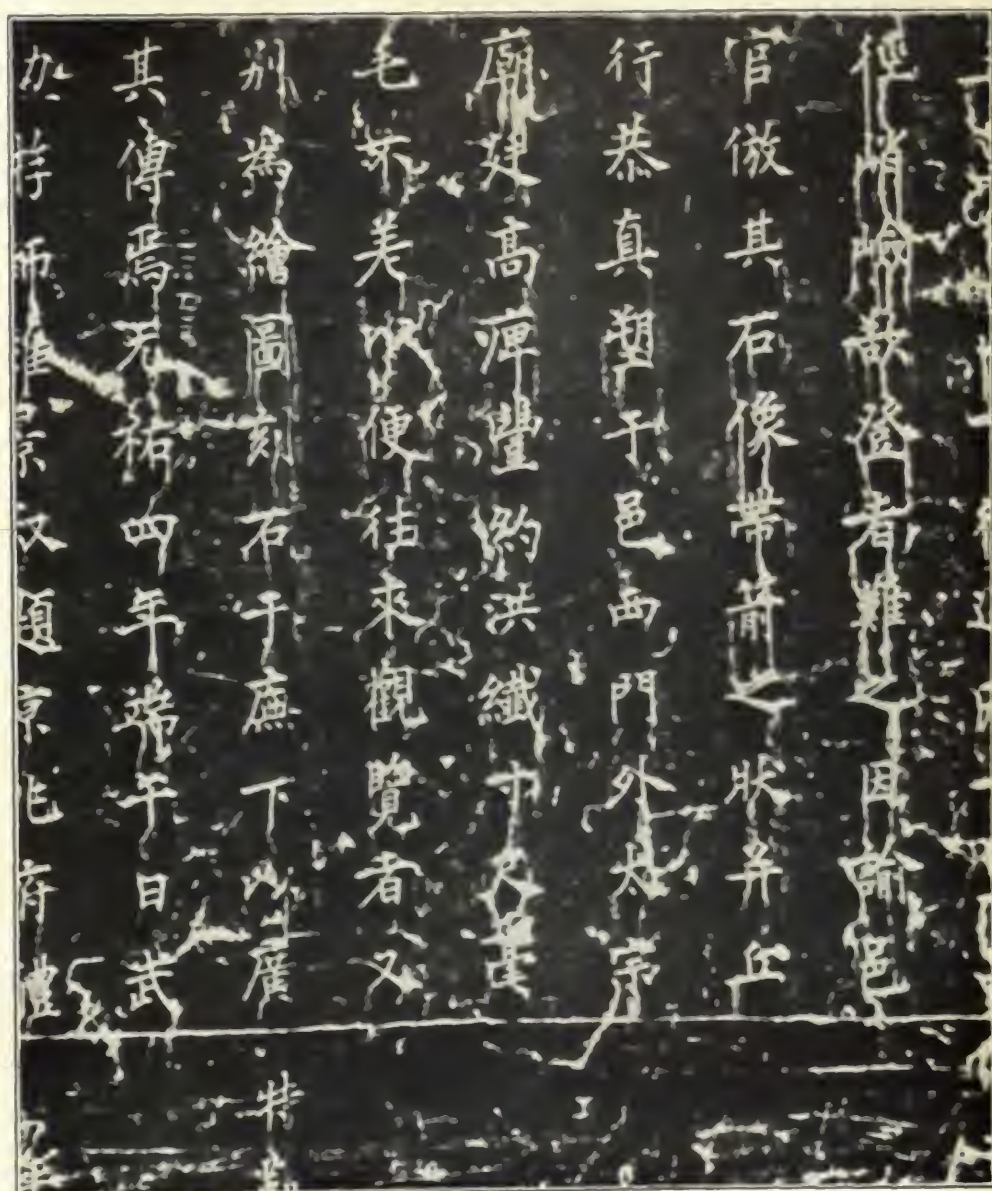 徑峭嶮欲登者難之因諭邑
官倣其石像帶箭之狀并丘
行恭真塑于邑西門外太宗
廟廷高庳豐約洪纖寸尺毫
毛不差以便往來觀覽者又
別為繪圖刻石于廡下以廣
特
其傳焉元祐四年端午日武
功游師雄景叔題京兆府禮